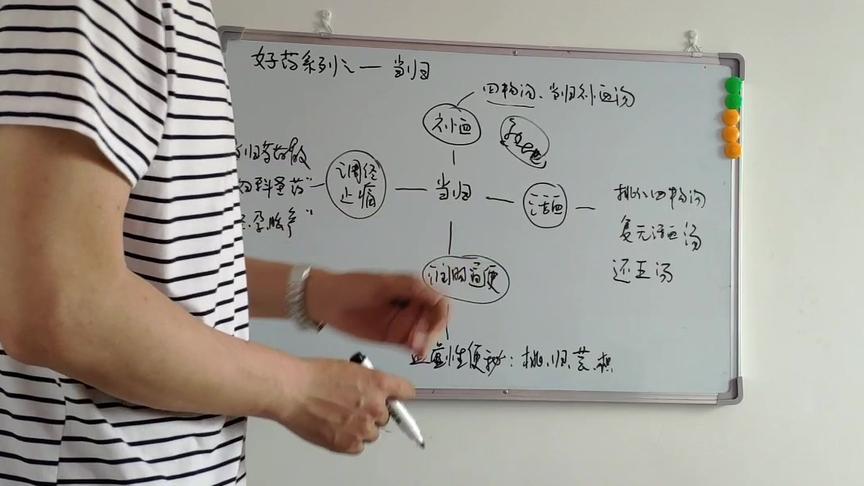 好药系列之一当归
四物汤、当归补血汤
补血
归芍药散
调经
止痛
妇科圣药"
经、孕、胎、产"
当归
活血
桃红四物汤
复元活血汤
还五汤
润肠通便
血虚性便秘:桃、归、苁、枳